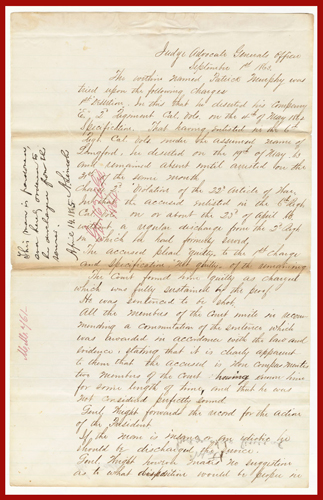 Judge Advocate Generals Office
September 1st 1864
The within named Patrick Murphy was
tried upon the following charges
1st Desertion. In this that he deserted his Company
2d Regiment Cal. Vols. on the 4th of May 1863
Specification. That having enlisted in the 6th
Regt Cal Vols under the assumed name of
he deserted on the 19th of May
and remained absent until arrested on the
of the same month
Charge Violation of the 22d Article of War
the accused enlisted in the 6th Regt
Cal on or about the 23d of April
a regular discharge from the 2d Regt
in which he had formerly served
The accused plead Guilty to the 1st charge
and Specification Not Guilty of the remaining
The Court found him Guilty as charged
which was fully sustained by the proof
He was sentenced to be shot.
All the members of the Court unite in recom
mending a commutation of the sentence which
was awarded in accordance with the law and
evidence; stating that it is clearly apparent
to them that the accused is Non Compos Mentis
two members of the Court having known him
for some length of time, and that he was
not considered perfectly sound
Genl. Wright forwards the record for the action
of the President
If the man is insane or an idiot he
should be discharged the service.
Genl. Wright however makes no suggestion
as to what disposition would be proper in
This man is pardoned,
and hereby ordered to
be discharged from the
service.
April 14, 1865 A. Lincoln